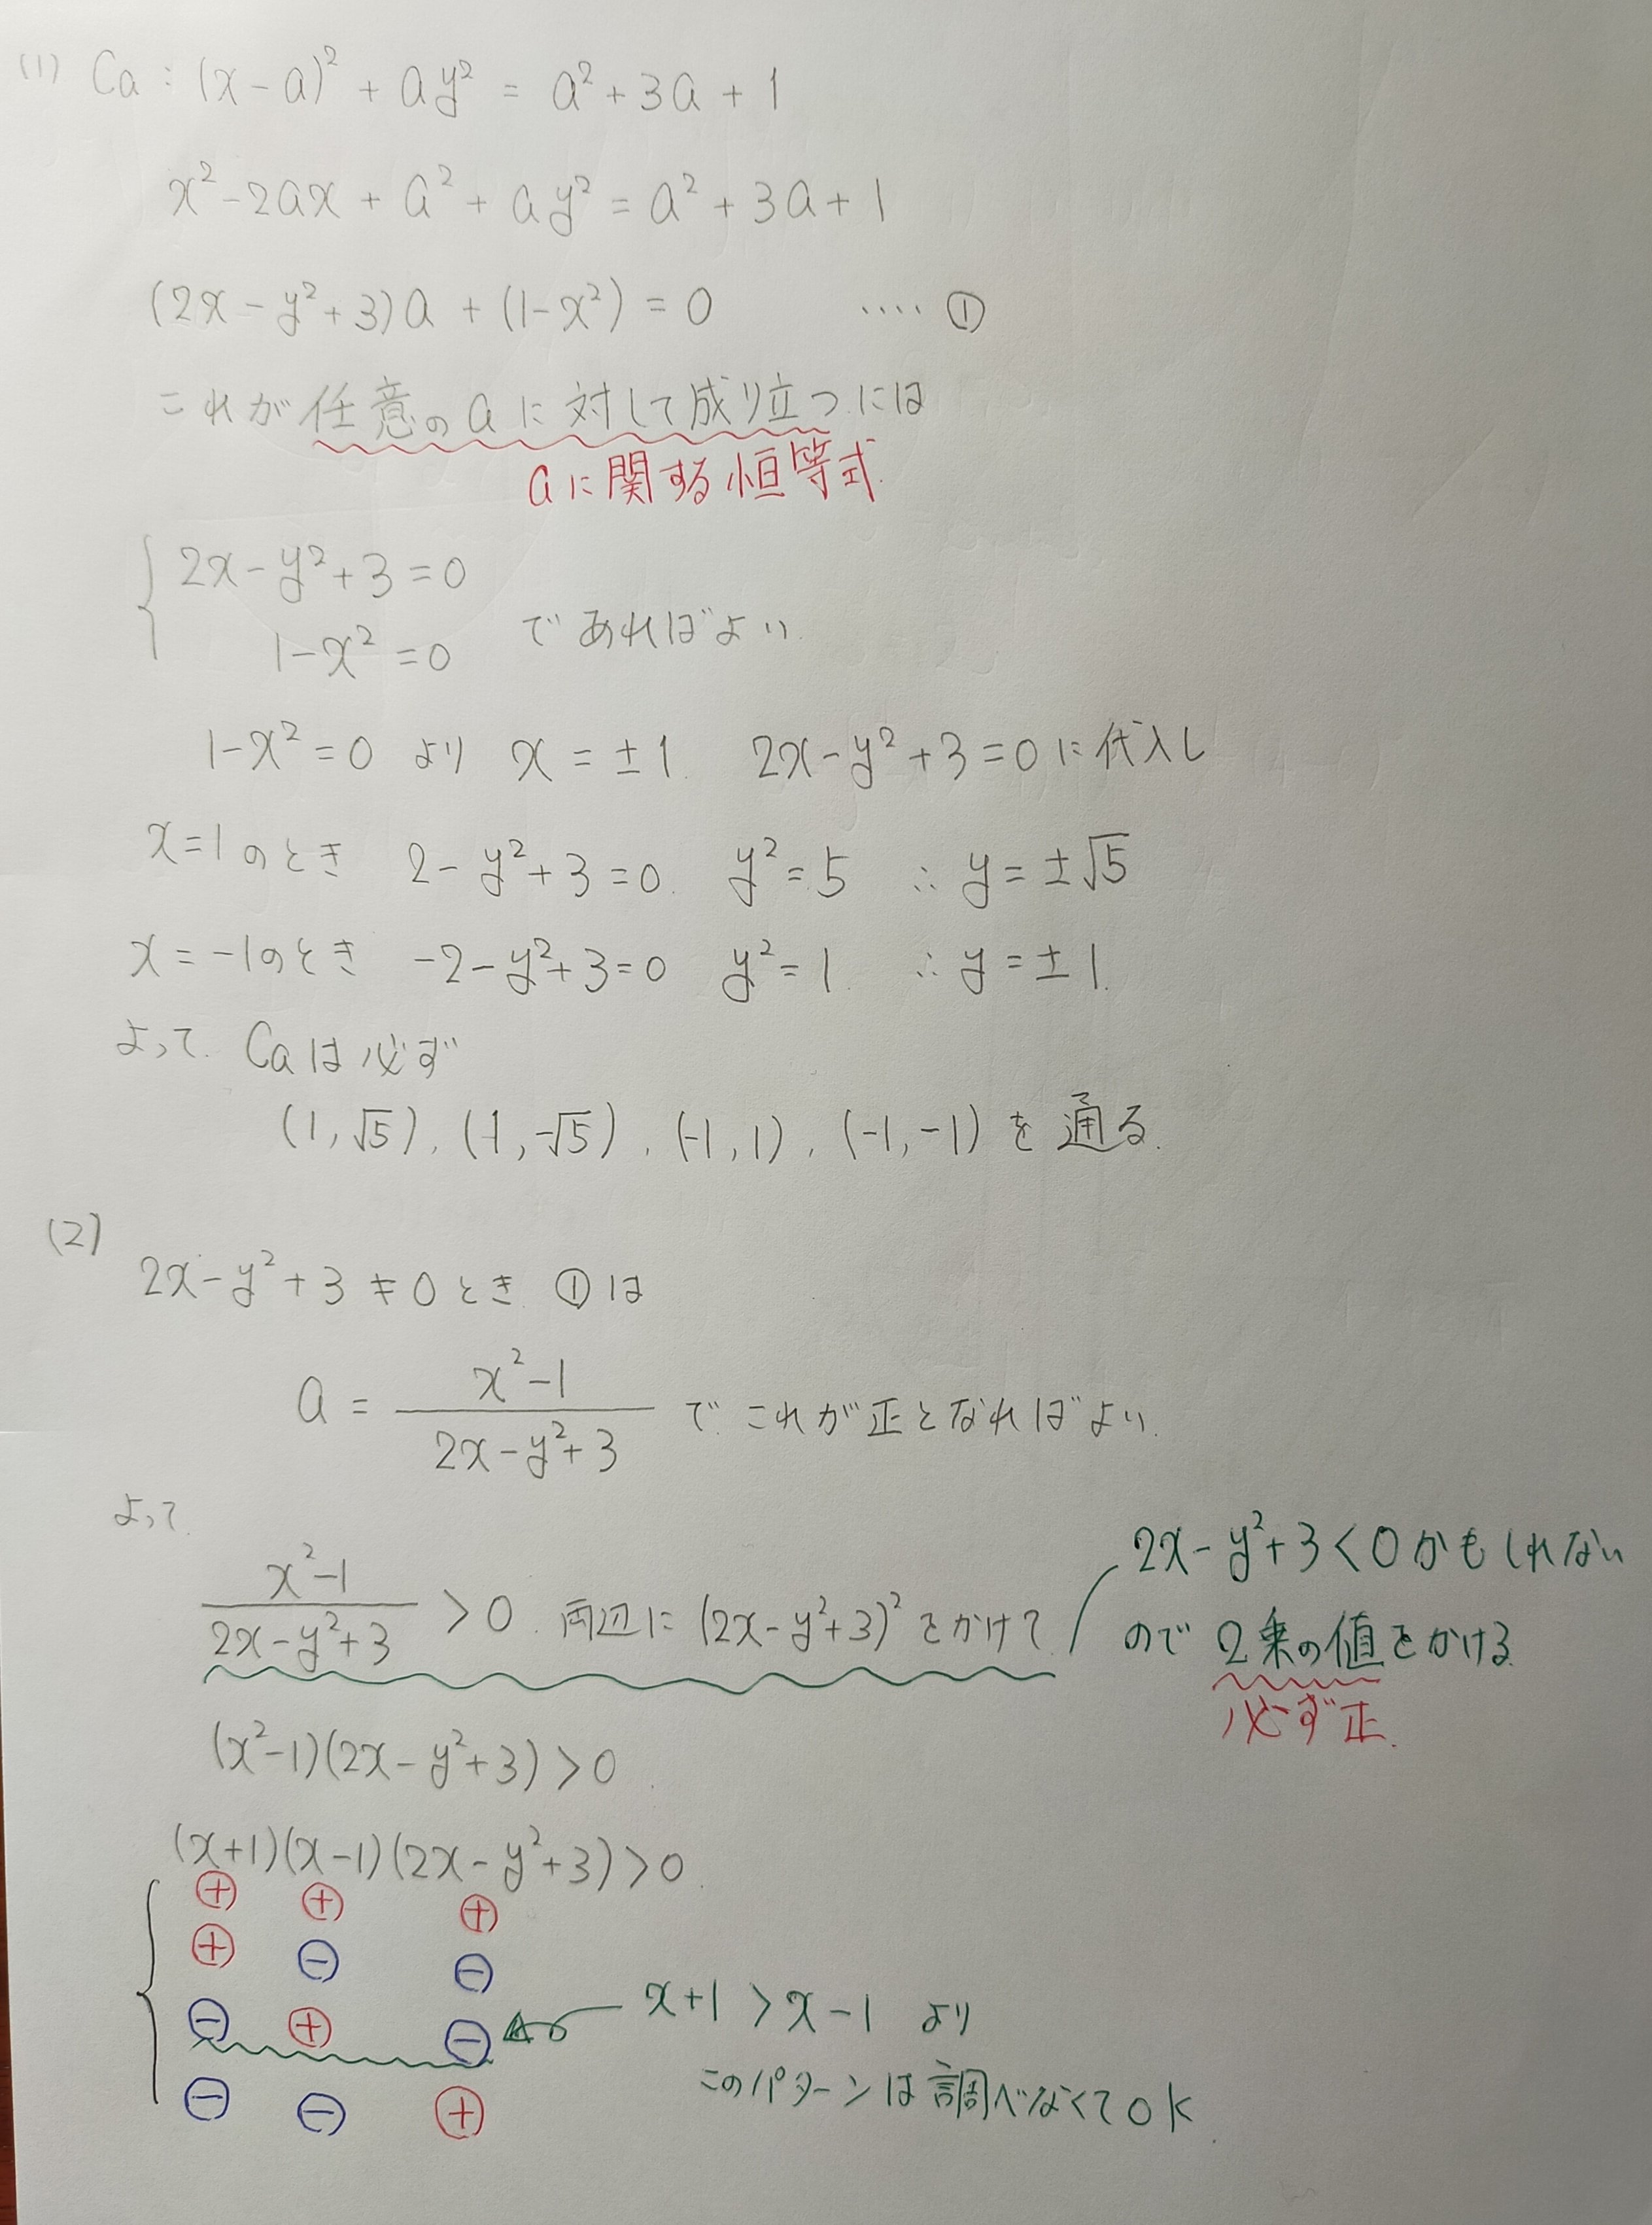 (1) Ca : (x-a)² + ay² = a² + 3a + 1
x² - 2ax + a² + ay² = a² + 3a + 1
(2x - y² + 3)a + (1 - x²) = 0 ‥‥ ①
これが任意のaに対して成り立つには
aに関する恒等式
2x - y² + 3 = 0
1 - x² = 0 であればよい.
1 - x² = 0 より x = ±1. 2x - y² + 3 = 0 に代入し
x = 1 のとき 2 - y² + 3 = 0. y² = 5 ∴ y = ±√5
x = -1のとき -2 - y² + 3 = 0 y² = 1. ∴ y = ±1.
よって. Caは必ず
(1, √5), (1, -√5), (-1, 1), (-1, -1) を通る.
(2)
2x - y² + 3 ≠ 0 とき ①は
a = (x² - 1)/(2x - y² + 3) で これが正となればよい.
よって.
(x² - 1)/(2x - y² + 3) > 0. 両辺に (2x - y² + 3)² をかけて
2x - y² + 3 < 0 かもしれない
ので 2乗の値をかける
必ず正.
(x² - 1)(2x - y² + 3) > 0.
(x+1)(x-1)(2x - y² + 3) > 0.
⊕ ⊕ ⊕
⊕ ⊖ ⊖
⊖ ⊕ ⊖
x+1 > x-1 より
このパターンは調べなくてOK.
⊖ ⊖ ⊕